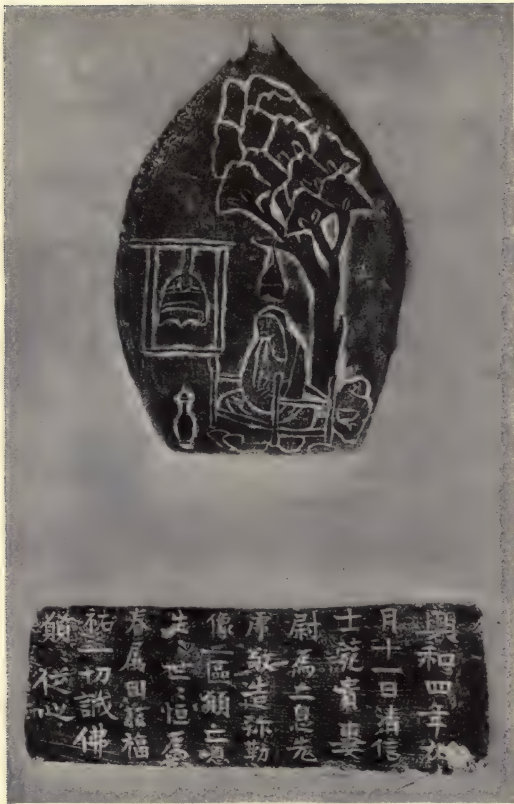 興和四年
月十一日清信
士苑貴妻
尉為亡息元
敬造弥勒
像一區願亡息
生〻世〻恒為
眷属因茲福
祐一切誠佛
願〻從心